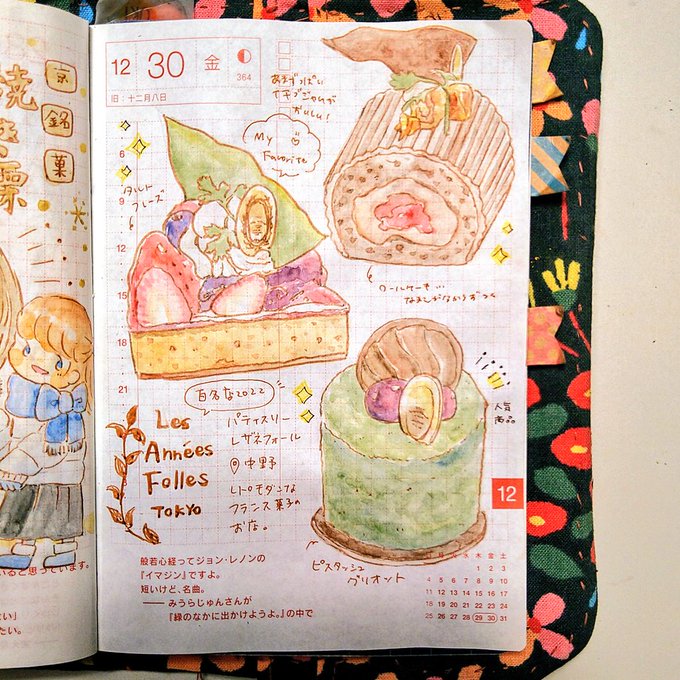 京
銘
菓
焼き栗
12 30 金
364
旧：十二月八日
6
9
12
15
18
21
My
Favorite
タルト
フレーズ
あまずっぱい
おいしい！
ロールケーキ…
百名店2022
Les
Années
Folles
TOKYO
パティスリー
レザネフォール
中野
レトロモダンな
フランス菓子の
お店。
人気
商品
ピスタッシュ
グリオット
12
般若心経ってジョン・レノンの
『イマジン』ですよ。
短いけど、名曲。
── みうらじゅんさんが
『緑のなかに出かけようよ。』の中で
日 月 火 水 木 金 土
1 2 3
4 5 6 7 8 9 10
11 12 13 14 15 16 17
18 19 20 21 22 23 24
25 26 27 28 29 30 31
いると思っています。